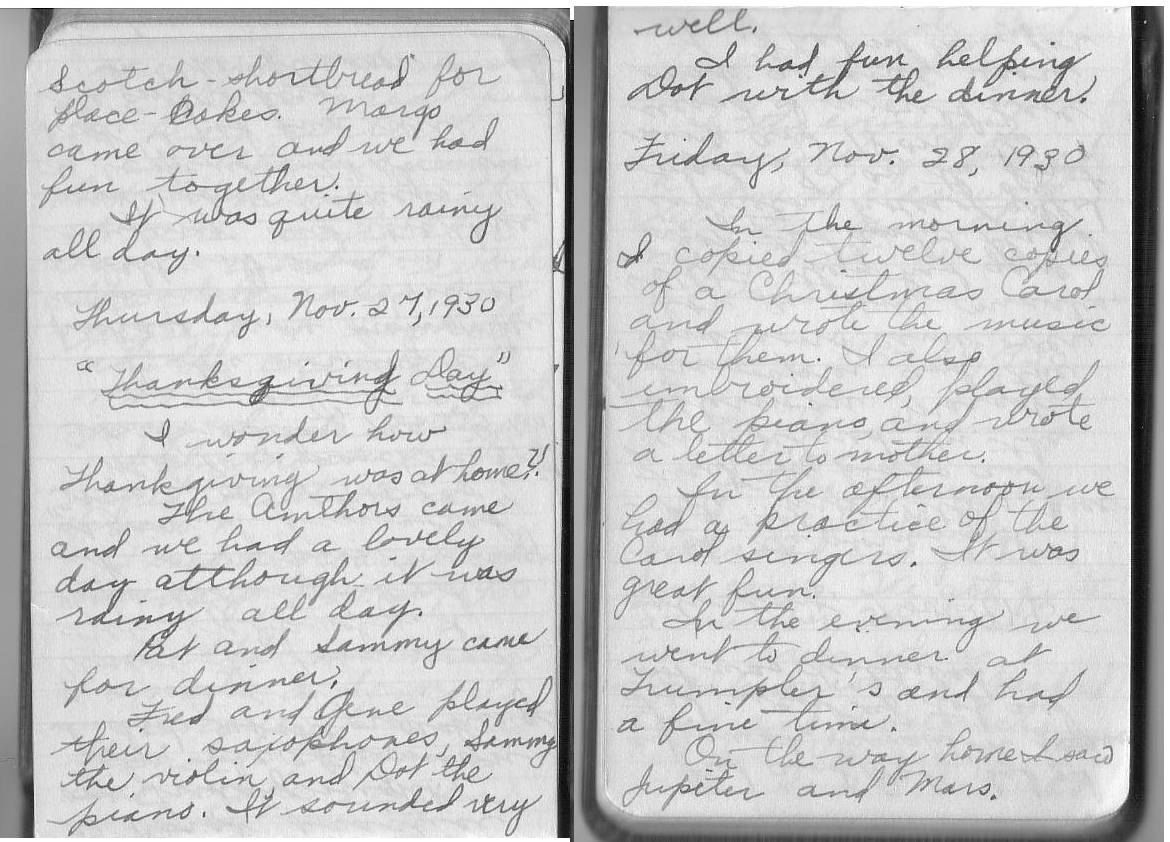 Scotch-shortbread for
place-Cakes. Margo
came over and we had
fun together.
It was quite rainy
all day.
Thursday, Nov. 27, 1930
"Thanksgiving Day"
I wonder how
Thanksgiving was at home?!
The Amthors came
and we had a lovely
day atthough it was
rainy all day.
Pat and Sammy came
for dinner.
Fred and Gene played
their saxophones, Sammy
the violin and Dot the
piano. It sounded very
well.
I had fun helping
Dot with the dinner.
Friday, Nov. 28, 1930
In the morning
I copied twelve copies
of a Christmas Carol
and wrote the music
for them. I also
embroidered, played
the piano, and wrote
a letter to mother.
In the afternoon we
had a practice of the
Carol singers. It was
great fun.
In the evening we
went to dinner at
Trumpler's and had
a fine time.
On the way home I saw
Jupiter and Mars.